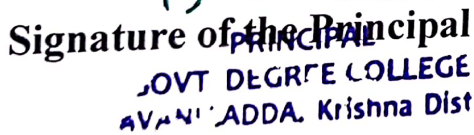 Signature of the Principal
PRINCIPAL
GOVT DEGREE COLLEGE
AVANIGADDA, Krishna Dist